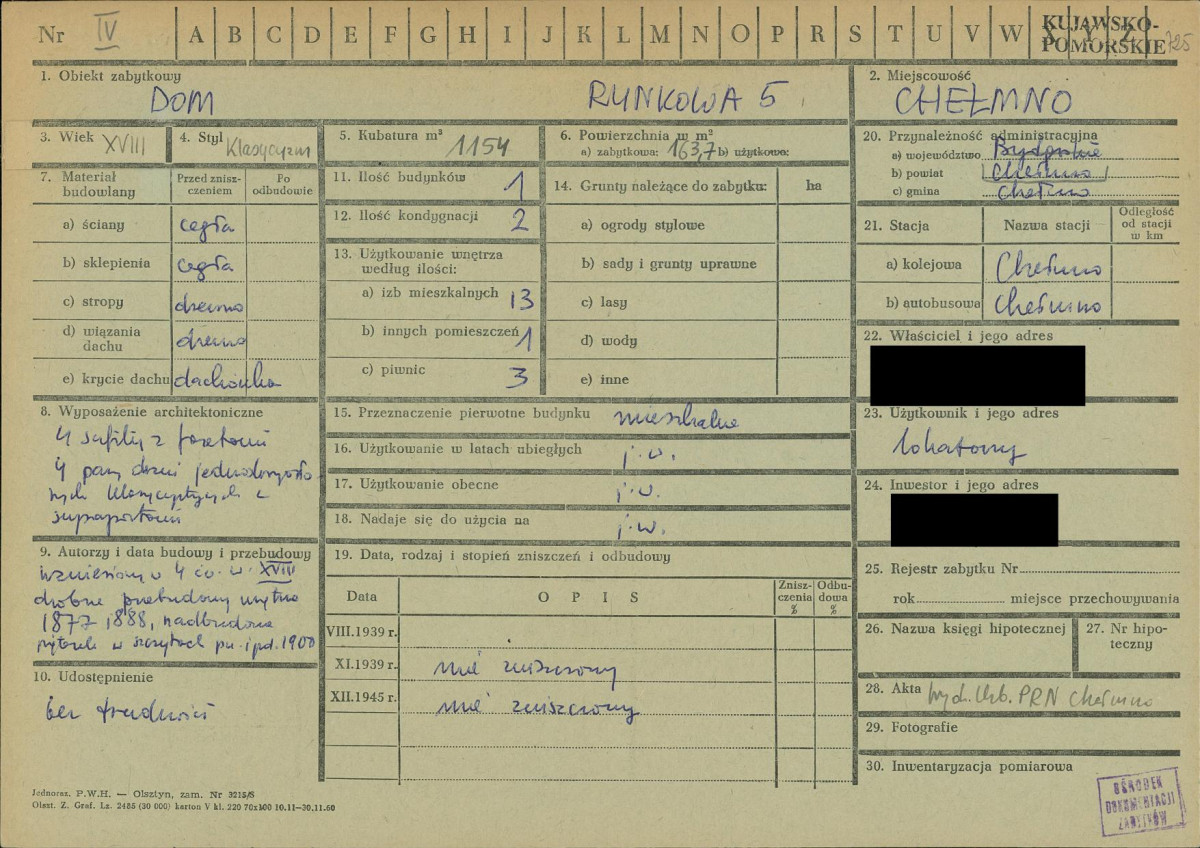 Nr IV A B C D E F G H I J K L M N O P R S T U V W X Y Z KUJAWSKO-POMORSKIE 725
1. Obiekt zabytkowy
DOM RYNKOWA 5
2. Miejscowość
CHEŁMNO
3. Wiek XVIII
4. Styl Klasycyzm
5. Kubatura m³ 1154
6. Powierzchnia w m²
a) zabytkowa: 163,7 b) użytkowa:
20. Przynależność administracyjna
a) województwo Bydgoskie
b) powiat Chełmno
c) gmina Chełmno
7. Materiał budowlany
Przed zniszczeniem
Po odbudowie
a) ściany cegła
b) sklepienia cegła
c) stropy drewno
d) wiązania dachu drewno
e) krycie dachu dachówka
11. Ilość budynków 1
12. Ilość kondygnacji 2
13. Użytkowanie wnętrza według ilości:
a) izb mieszkalnych 13
b) innych pomieszczeń 1
c) piwnic 3
14. Grunty należące do zabytku: ha
a) ogrody stylowe
b) sady i grunty uprawne
c) lasy
d) wody
e) inne
21. Stacja Nazwa stacji Odległość od stacji w km
a) kolejowa Chełmno
b) autobusowa Chełmno
22. Właściciel i jego adres
23. Użytkownik i jego adres
lokatorzy
24. Inwestor i jego adres
8. Wyposażenie architektoniczne
4 sufity z fasetami
4 pary drzwi jednoskrzydło
wych klasycystycznych z
supraportami
9. Autorzy i data budowy i przebudowy
wzniesiony w 4 ćw. w. XVIII
drobne przebudowy wnętrza
1877, 1888, nadbudowa
w szczytach pn. i pd. 1900
10. Udostępnienie
bez trudności
15. Przeznaczenie pierwotne budynku mieszkalne
16. Użytkowanie w latach ubiegłych j.w.
17. Użytkowanie obecne j.w.
18. Nadaje się do użycia na j.w.
19. Data, rodzaj i stopień zniszczeń i odbudowy
Data OPIS Zniszczenia % Odbudowa %
VIII.1939 r.
XI.1939 r. nie zniszczony
XII.1945 r. nie zniszczony
25. Rejestr zabytku Nr
rok miejsce przechowywania
26. Nazwa księgi hipotecznej
27. Nr hipoteczny
28. Akta Wyd. Kult. PRN Chełmno
29. Fotografie
30. Inwentaryzacja pomiarowa
Jednoraz. P.W.H. — Olsztyn, zam. Nr 3215/S
Olszt. Z. Graf. Lz. 2485 (30 000) karton V kl. 220 70x100 10.11—30.11.60
OŚRODEK
DOKUMENTACJI
ZABYTKÓW